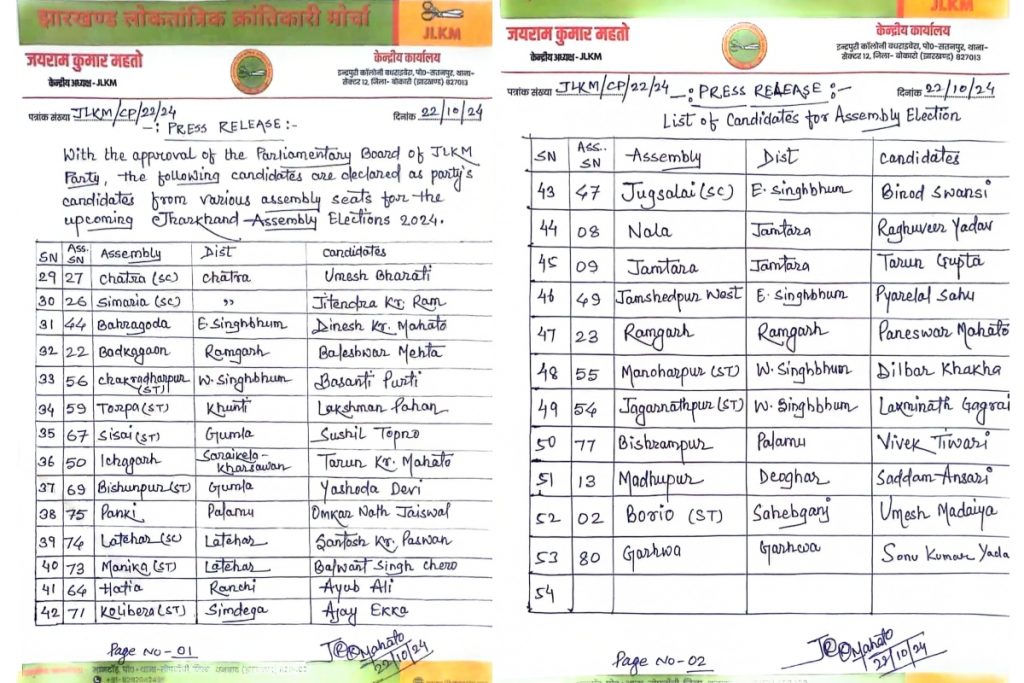 झारखण्ड लोकतांत्रिक क्रांतिकारी मोर्चा
JLKM
जयराम कुमार महतो
केन्द्रीय अध्यक्ष - JLKM
केन्द्रीय कार्यालय
इन्द्रपुरी कॉलोनी
सेक्टर 12, जिला- बोकारो (झारखण्ड) 827013
पत्रांक संख्या JLKM/CP/22/24
दिनांक 22/10/24
-: PRESS RELEASE:-
With the approval of the Parliamentary Board of JLKM
Party, the following candidates are declared as party's
candidates from various assembly seats for the
upcoming Jharkhand Assembly Elections 2024.
SN Ass. SN Assembly Dist Candidates
29 27 Chatra (SC) Chatra Umesh Bharati
30 26 Simaria (SC) ,, Jitendra Kr. Ram
31 44 Bahragoda E. Singhbhum Dinesh Kr. Mahato
32 22 Badkagaon Ramgarh Baleshwar Mehta
33 56 Chakradharpur (ST) W. Singhbhum Basanti Purti
34 59 Torpa (ST) Khunti Lakshman Pahan
35 67 Sisai (ST) Gumla Sushil Topno
36 50 Ichagarh Saraikela-Kharsawan Tarun Kr. Mahato
37 69 Bishunpur (ST) Gumla Yashoda Devi
38 75 Panki Palamu Omkar Nath Jaiswal
39 74 Latehar (SC) Latehar Santosh Kr. Paswan
40 73 Manika (ST) Latehar Balwant Singh Chero
41 64 Hatia Ranchi Ayub Ali
42 71 Kolibera (ST) Simdega Ajay Ekka
Page No-01
Mahato
22/10/24
JLKM
जयराम कुमार महतो
केन्द्रीय अध्यक्ष - JLKM
केन्द्रीय कार्यालय
इन्द्रपुरी कॉलोनी
सेक्टर 12, जिला- बोकारो (झारखण्ड) 827013
पत्रांक संख्या JLKM/CP/22/24
-: PRESS RELEASE:-
दिनांक 22/10/24
List of Candidates for Assembly Election
SN Ass. SN Assembly Dist Candidates
43 47 Jugsalai (SC) E. Singhbhum Binod Swansi
44 08 Nala Jamtara Raghuveer Yadav
45 09 Jamtara Jamtara Tarun Gupta
46 49 Jamshedpur West E. Singhbhum Pyarelal Sahu
47 23 Ramgarh Ramgarh Paneswar Mahato
48 55 Manoharpur (ST) W. Singhbhum Dilbar Khakha
49 54 Jagarnathpur (ST) W. Singhbhum Laxminath Gagrai
50 77 Bishrampur Palamu Vivek Tiwari
51 13 Madhupur Deoghar Saddam Ansari
52 02 Borio (ST) Sahebganj Umesh Madaiya
53 80 Garhwa Garhwa Sonu Kumar Yada
54
Page No-02
Mahato
22/10/24